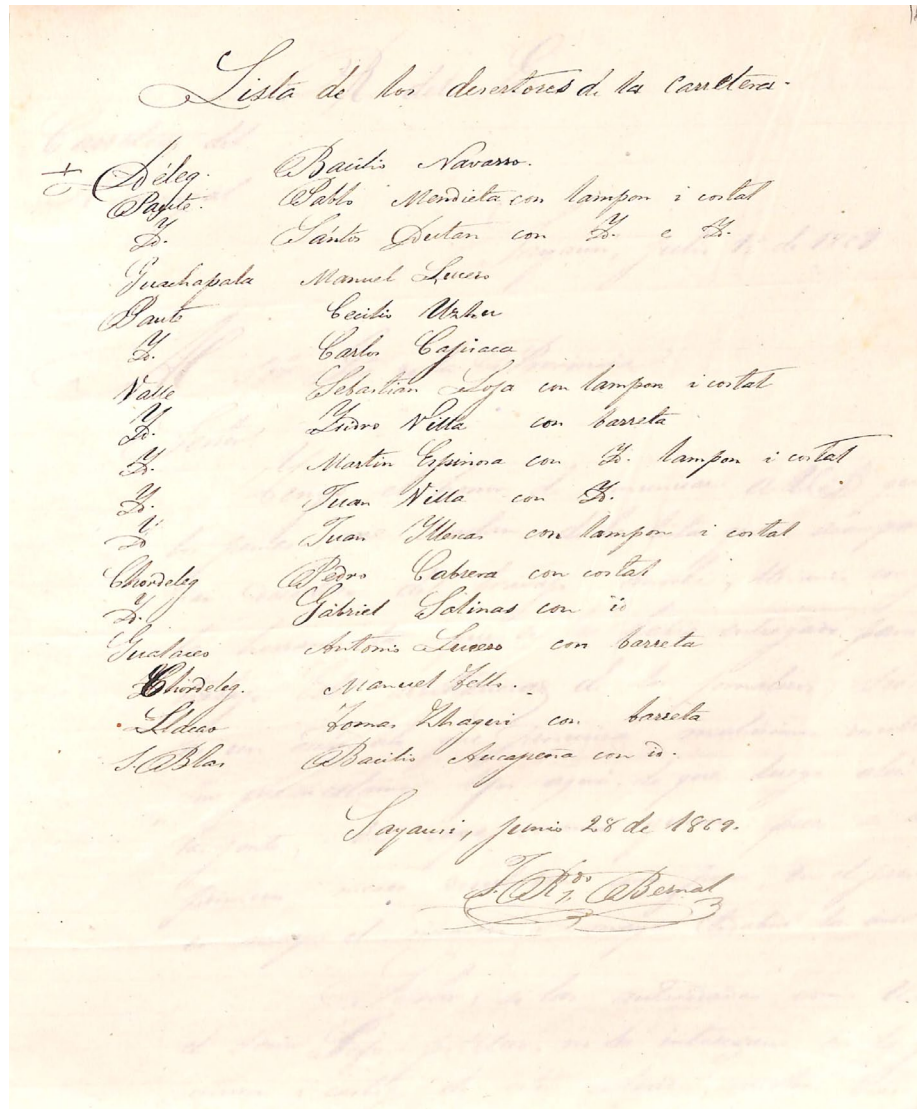 Lista de los desertores de la carretera.
Déleg. Bacilio Navarro.
Paute. Pablo Mendieta con lampon i costal
Yd. Santos Dutan con Yd. e Yd.
Guachapala Manuel Lucero
Paute Cecilio Uzhu
Yd. Carlos Cajicaca
Valle Sebastian Loja con lampon i costal
Yd. Ysidro Villa con barreta
Yd. Martin Espinosa con Yd. lampon i costal
Yd. Juan Villa con Yd.
Yd Juan Yllescas con lampon i costal
Chordeleg Pedro Cabrera con costal
Yd. Gabriel Salinas con id
Gualaceo Antonio Lucero con barreta
Chordeleg. Manuel Tello.
Llacao Tomas con barreta
S. Blas Bacilio Aucapeña con id.
Sayausi, junio 28 de 1869.
Bernal